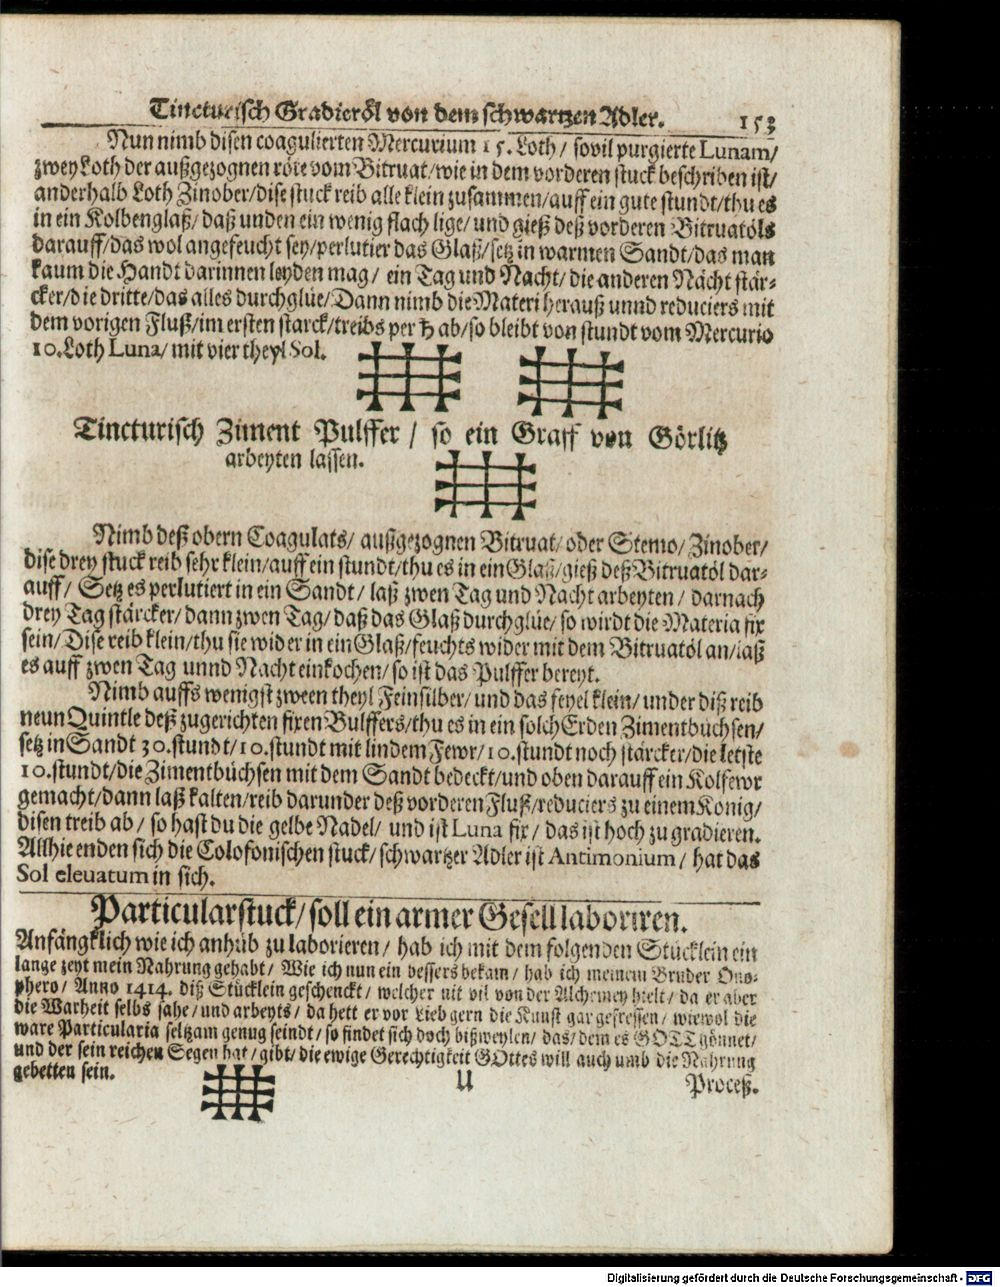 Tincturisch Gradieröl von dem schwartzen Adler. 153
Nun nimb disen coagulierten Mercurium 15. Loth/ sovil purgierte Lunam/
zwey Loth der außgezognen röte vom Vitruat/wie in dem vorderen stuck beschriben ist/
anderhalb Loth Zinober/dise stuck reib alle klein zusammen/auff ein gute stundt/thu es
in ein Kolbenglaß/ daß unden ein wenig flach lige/ und gieß deß vorderen Vitruatöls
darauff/das wol angefeucht sey/perlutier das Glaß/setz in warmen Sandt/das man
kaum die Handt darinnen leyden mag/ ein Tag und Nacht/ die anderen Nächt stär-
cker/die dritte/das alles durchglüe/Dann nimb die Materi herauß unnd reduciers mit
dem vorigen Fluß/im ersten starck/treibs per ♄ ab/so bleibt von stundt vom Mercurio
10. Loth Luna/ mit vier theyl Sol.
Tincturisch Ziment Pulffer / so ein Graff von Görlitz
arbeyten lassen.
Nimb deß obern Coagulats/ außgezognen Vitruat/ oder Stemo/ Zinober/
dise drey stuck reib sehr klein/auff ein stundt/thu es in ein Glaß/gieß deß Vitruatöl dar-
auff/ Setz es perlutiert in ein Sandt/ laß zwen Tag und Nacht arbeyten/ darnach
drey Tag stärcker/ dann zwen Tag/ daß das Glaß durchglüe/ so wirdt die Materia fix
sein/ Dise reib klein/thu sie wider in ein Glaß/feuchts wider mit dem Vitruatöl an/laß
es auff zwen Tag unnd Nacht einkochen/ so ist das Pulffer bereyt.
Nimb auffs wenigst zween theyl Feinsilber/ und das feyel klein/ under diß reib
neun Quintle deß zugerichten fixen Pulffers/thu es in ein solch Erden Zimentbüchsen/
setz in Sandt 30. stundt/10. stundt mit lindem Fewr/10. stundt noch stärcker/die letste
10. stundt/die Zimentbüchsen mit dem Sandt bedeckt/und oben darauff ein Kolfewr
gemacht/dann laß kalten/reib darunder deß vorderen Fluß/reduciers zu einem König/
disen treib ab/ so hast du die gelbe Nadel/ und ist Luna fix/ das ist hoch zu gradieren.
Allhie enden sich die Colofonischen stuck/ schwartzer Adler ist Antimonium/ hat das
Sol elevatum in sich.
Particularstuck/soll ein armer Gesell laboriren.
Anfängklich wie ich anhüb zu laborieren/ hab ich mit dem folgenden Stücklein ein
lange zeyt mein Nahrung gehabt/ Wie ich nun ein bessers bekam/ hab ich meinem Bruder Ono-
phero/ Anno 1414. diß Stücklein geschenckt/ welcher nit vil von der Alchemey hielt/ da er aber
die Warheit selbs sahe/und arbeyts/ da hett er vor Lieb gern die Kunst gar gefressen/ wiewol die
ware Particularia seltzam genug seindt/ so findet sich doch bißweylen/ das/ dem es GOTT gönnet/
und der sein reichen Segen hat/ gibt/ die ewige Gerechtigkeit GOttes will auch umb die Nahrung
gebetten sein.
U
Proceß.
Digitalisierung gefördert durch die Deutsche Forschungsgemeinschaft - DFG